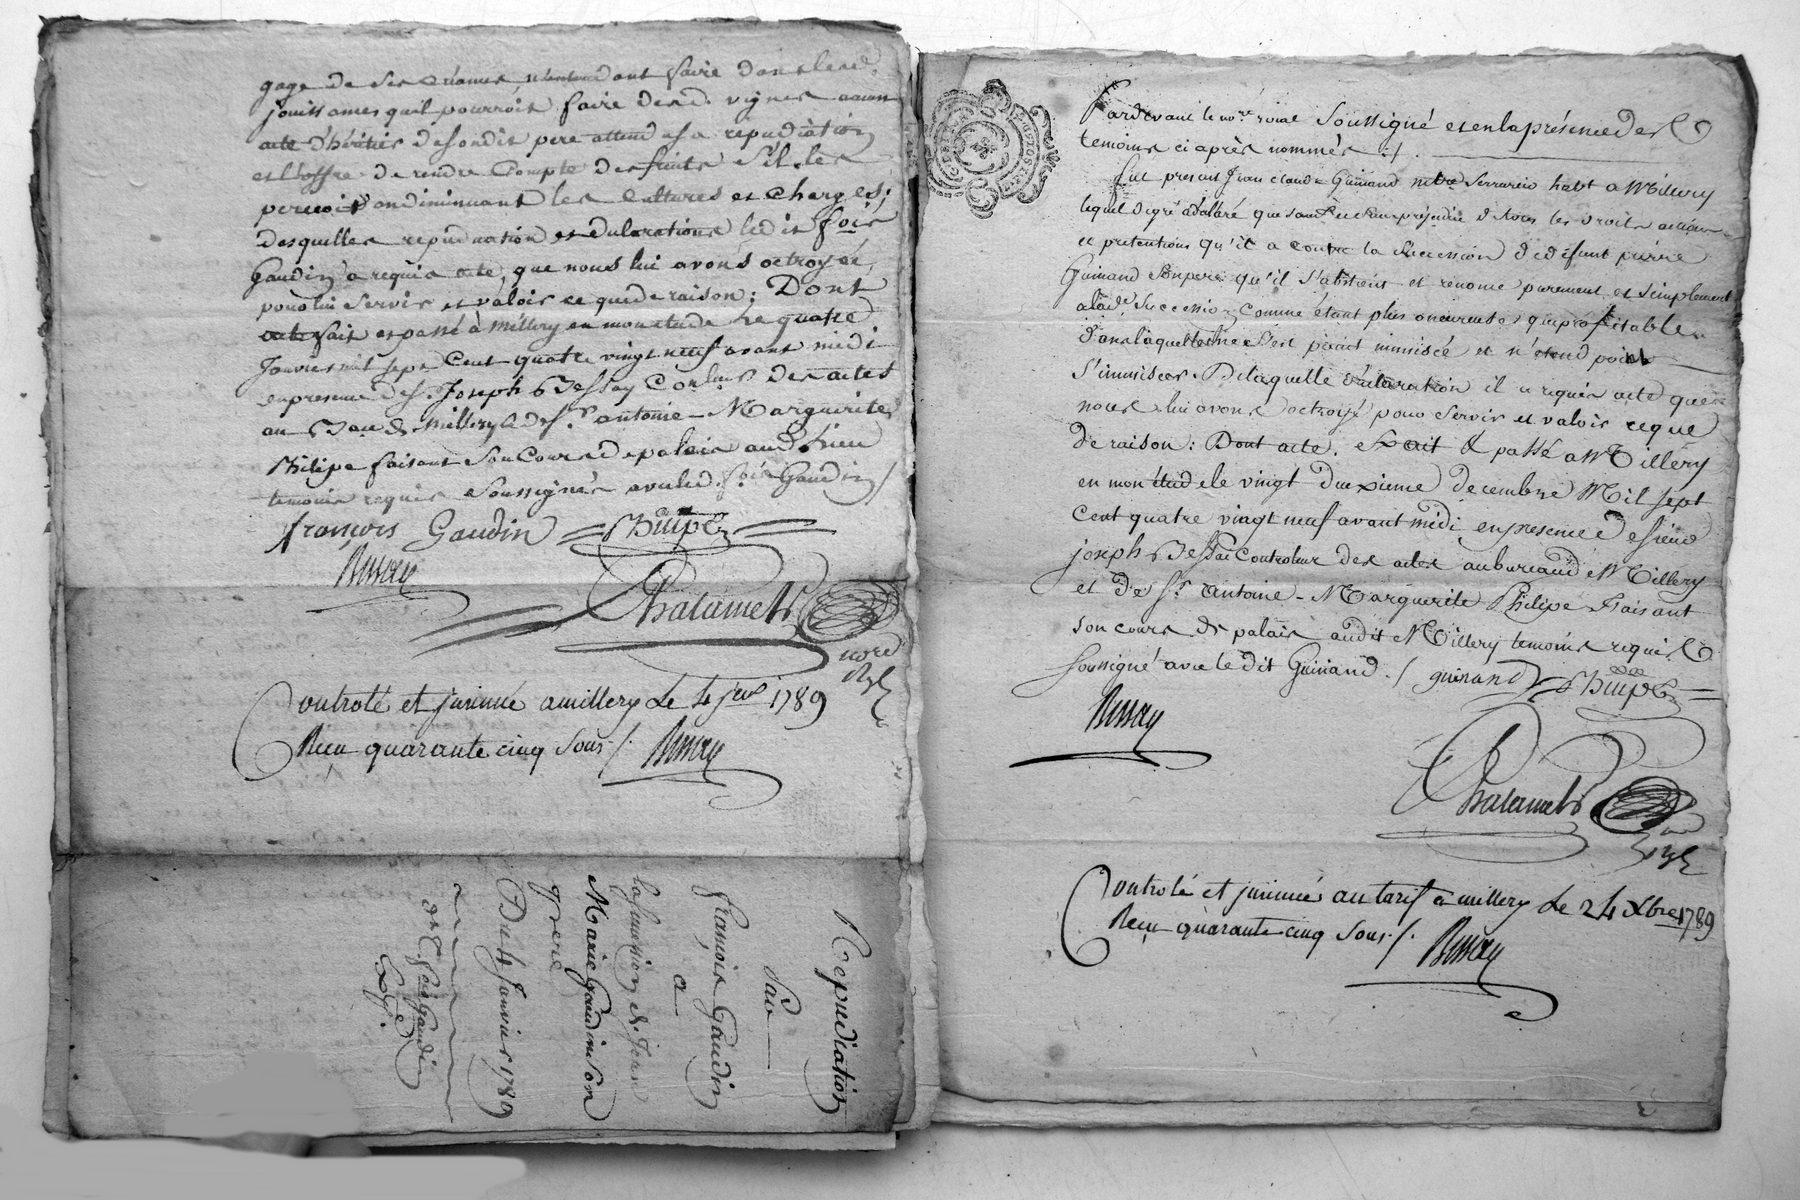 gage de ses Créances, dont faire dans les
jouissances qu'il pourroit faire desd. vignes aucun
acte d'héritier desondit pere attendu sa repudiation
et l'offre de rendre Compte des fruits s'il les
percoit en diminuant les Cultures et Charges;
Desquelles repudiation et declarations ledit fois
Gaudin a requis acte, que nous lui avons octroyé,
pour lui servir et valoir ce que de raison; Dont
acte fait et passé à Millery en mon etude le quatre
Janvier mil sept Cent quatre vingt neuf avant midi
en presence de s.r Joseph Bessay Conleur des actes
au Bau de Millery & de s.r antoine-Marguerite
Philipe faisant son Cours de palais aud. lieu
temoins requis & soussignés avec led. fois Gaudin /
françois Gaudin Philipe
Bessay
Chalamel
nore
Ryl
Controlé et jnsinué a millery Le 4 jer 1789
Recu quarante cinq sous /. Bessay
Repudiation
Par
francois Gaudin
a
la succession de Jean
Marie Gaudin Son
pere
Du 4 Janvier 1789
fois Gaudin
Exp.
Pardevant le no.re roial soussigné et en la présence des
temoins ci après nommés :/.
fut present Jean claude Guinand m.tre serrurier habt a Millery
lequel de gré a déclaré que sans prejudice de tous les droits actions
et pretentions qu'il a contre la succession de défunt pierre
Guinand son pere qu'il s'abstient et renonce purement et simplement
a lad.e succession comme étant plus onereuse que profitable
dans laquelle il ne s'est point immiscée et n'etend point
s'immiscer. De laquelle déclaration il a requis acte que
nous lui avons octroyé pour servir et valoir ce que
de raison: Dont acte. fait & passé a Millery
en mon étude le vingt deuxieme decembre Mil sept
cent quatre vingt neuf avant midi, en presence de sieur
joseph Bessai controleur des actes au bureau de Millery
et de s.r Antoine-Marguerite Philipe faisant
son cours de palais audit Millery temoins requis
soussigné avec le dit Guinand. / guinand Philipe
Bessay
Chalamel
Ryl
Controlé et jnsinué au tarif a millery Le 24 Xbre 1789
Recu quarante cinq sous /. Bessay